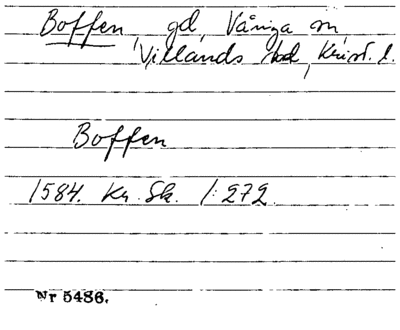 Boffen, gd, Vånga sn,
Villands hd, Krist. l.
Boffen
1584. Kr. Sk. 1:272.
Nr 5486.